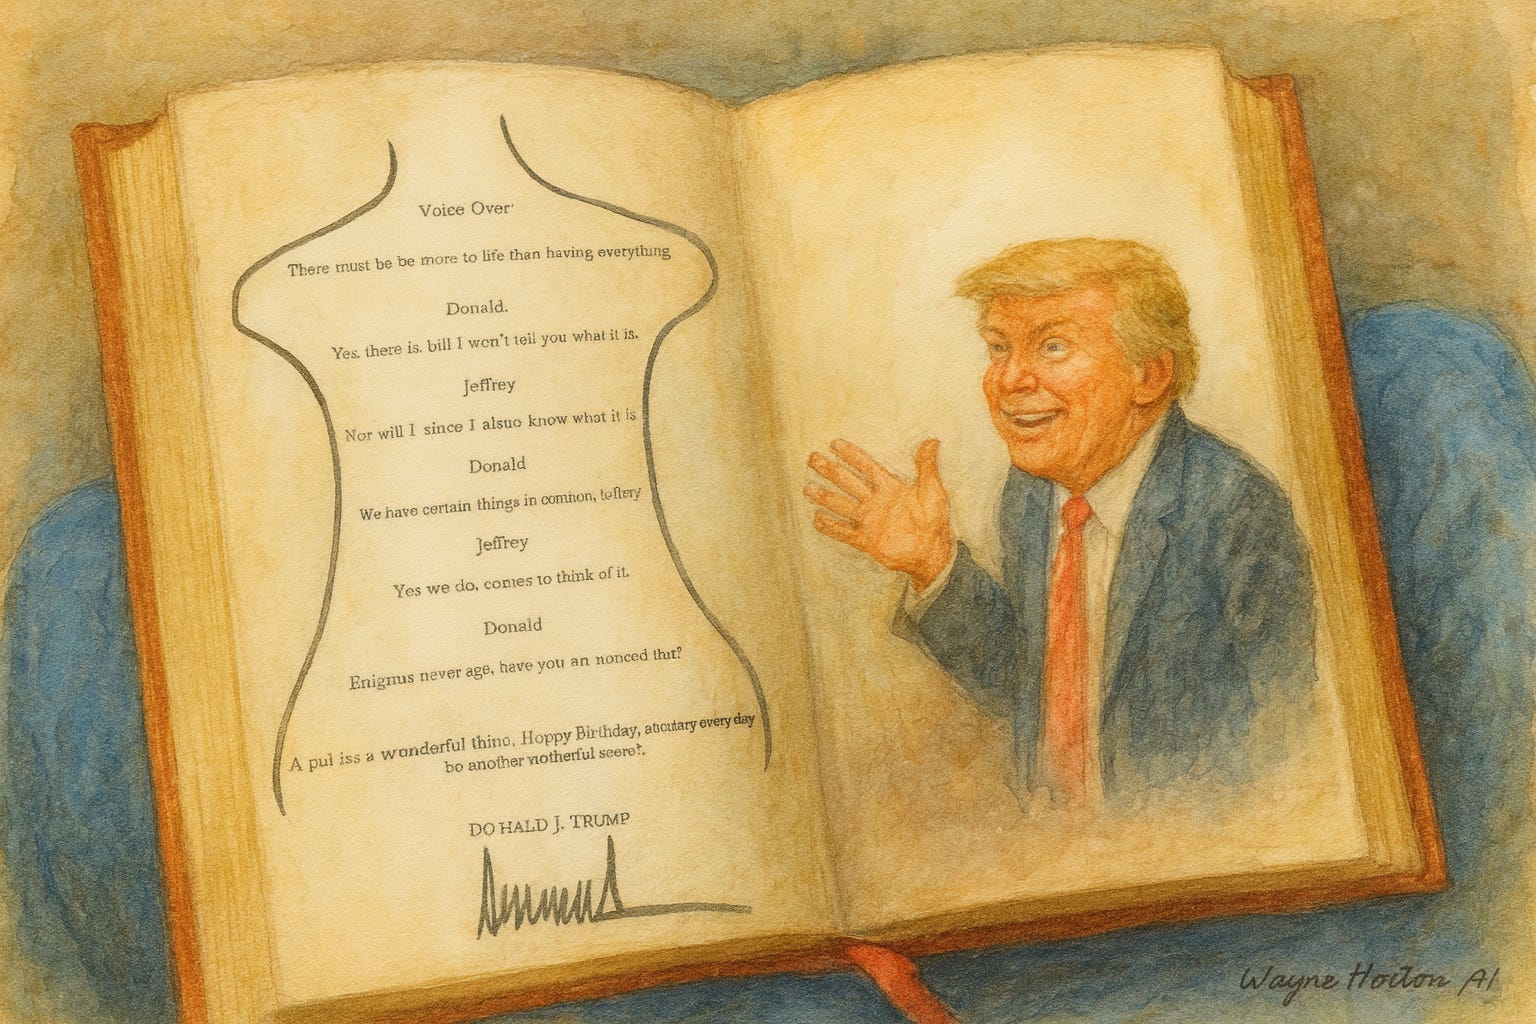 Voice Over'
There must be be more to life than having everything
Donald.
Yes. there is. bill I won't tell you what it is.
Jeffrey
Nor will I since I alsuo know what it is
Donald
We have certain things in common, teffery
Jeffrey
Yes we do, comes to think of it.
Donald
Enignus never age, have you an nonced thıt?
A pul iss a wonderful thino, Hoppy Birthday, every day
bo another seeret.
DO HALD J. TRUMP
Wayne Horton AI